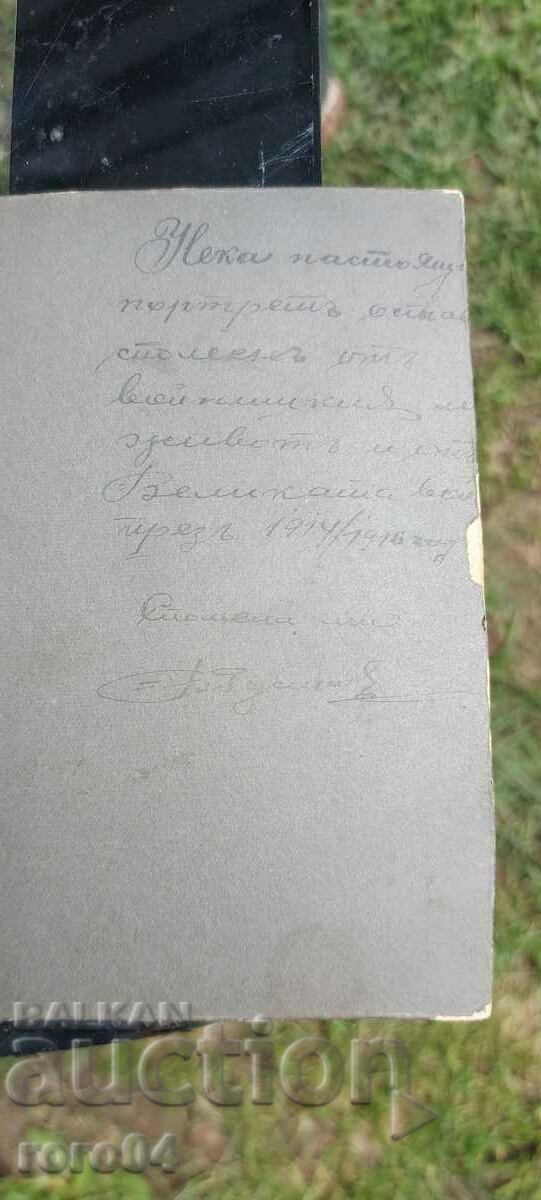 Нека настоящ
портретъ остав
споменъ отъ
войнишкия ми
животъ и отъ
Великата вой
презъ 1914/1915 год
Спомена ми
BALKAN
auction
roro04